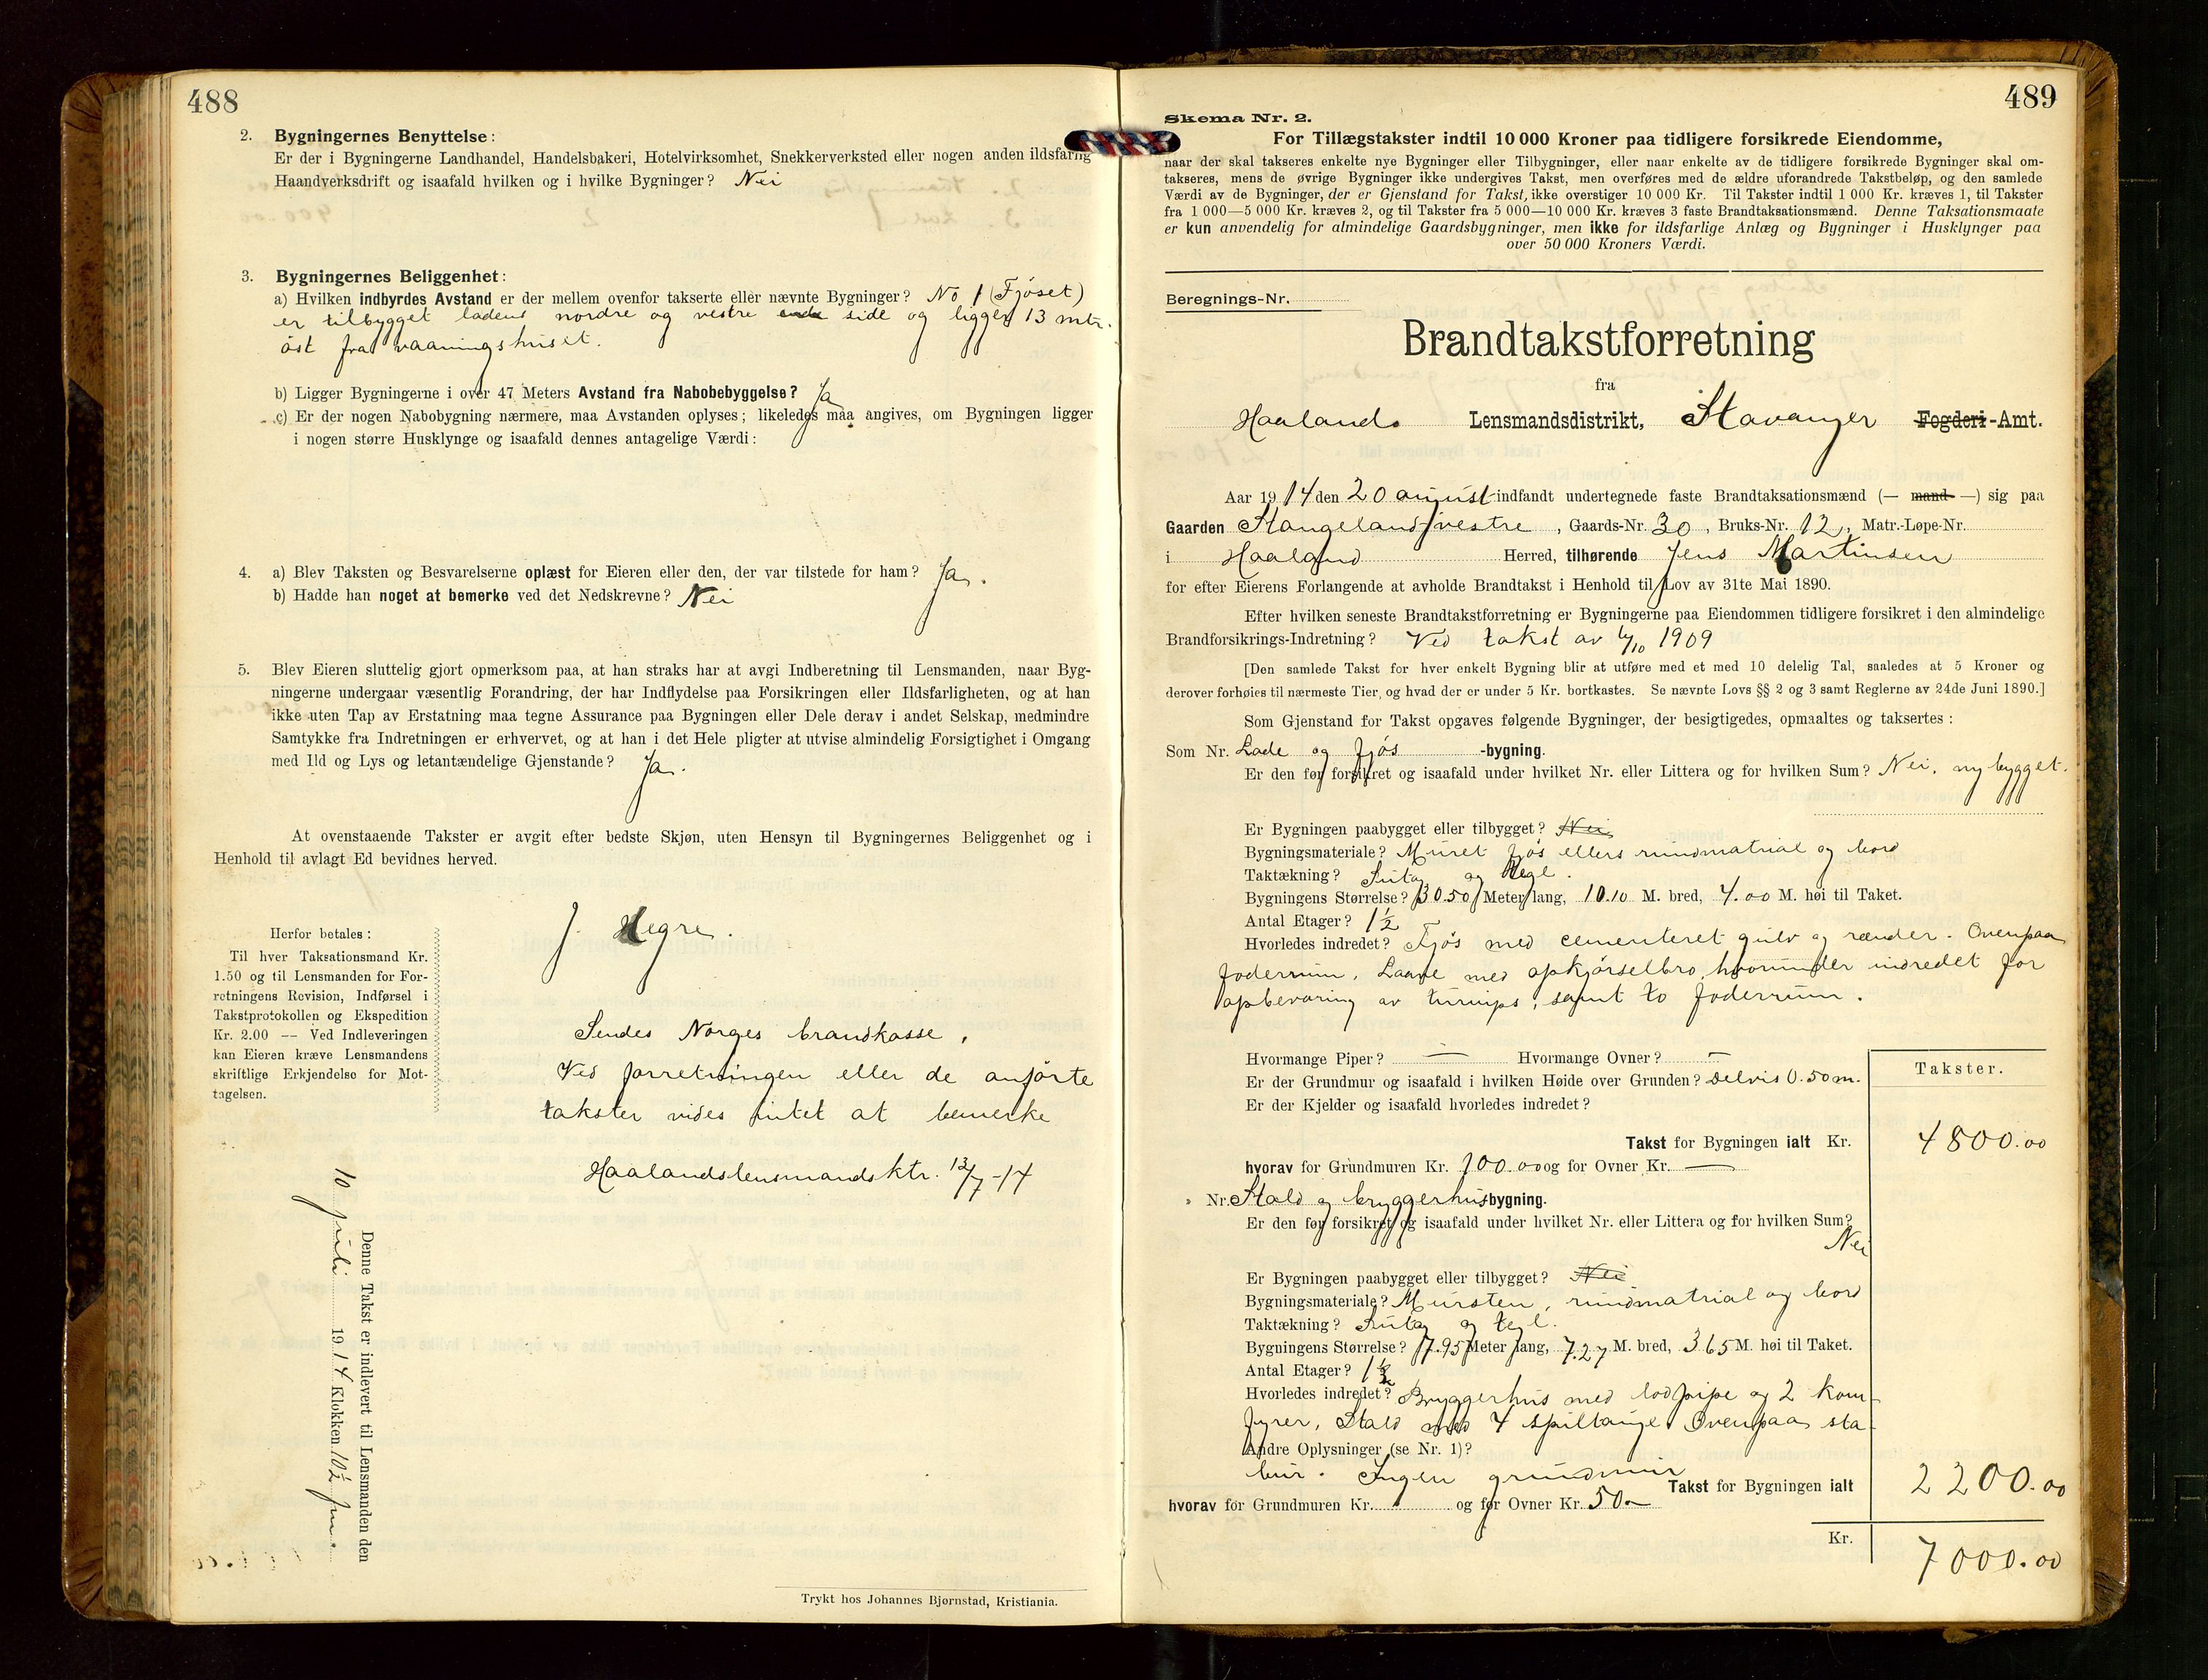 488
2. Bygningernes Benyttelse:
Er der i Bygningerne Landhandel, Handelsbakeri, Hotelvirksomhet, Snekkerverksted eller nogen anden ildsfarlig
Haandverksdrift og isaafald hvilken og i hvilke Bygninger? Nei
3. Bygningernes Beliggenhet:
a) Hvilken indbyrdes Avstand er der mellem ovenfor takserte eller nævnte Bygninger? No 1 (Fjöset)
er tilbygget ladens nordre og vestre ende side og ligger 13 mtr.
öst fra vaaningshuset.
b) Ligger Bygningerne i over 47 Meters Avstand fra Nabobebyggelse? Ja
c) Er der nogen Nabobygning nærmere, maa Avstanden oplyses; likeledes maa angives, om Bygningen ligger
i nogen større Husklynge og isaafald dennes antagelige Værdi:
4. a) Blev Taksten og Besvarelserne oplæst for Eieren eller den, der var tilstede for ham? Ja.
b) Hadde han noget at bemerke ved det Nedskrevne? Nei
5. Blev Eieren sluttelig gjort opmerksom paa, at han straks har at avgi Indberetning til Lensmanden, naar Byg-
ningerne undergaar væsentlig Forandring, der har Indflydelse paa Forsikringen eller Ildsfarligheten, og at han
ikke uten Tap av Erstatning maa tegne Assurance paa Bygningen eller Dele derav i andet Selskap, medmindre
Samtykke fra Indretningen er erhvervet, og at han i det Hele pligter at utvise almindelig Forsigtighet i Omgang
med Ild og Lys og letantændelige Gjenstande? Ja.
At ovenstaaende Takster er avgit efter bedste Skjøn, uten Hensyn til Bygningernes Beliggenhet og i
Henhold til avlagt Ed bevidnes herved.
J. Hegre.
Herfor betales:
Til hver Taksationsmand Kr.
1.50 og til Lensmanden for For-
retningens Revision, Indførsel i
Takstprotokollen og Ekspedition
Kr. 2.00 — Ved Indleveringen
kan Eieren kræve Lensmandens
skriftlige Erkjendelse for Mot-
tagelsen.
Sendes Norges brandkasse.
Ved forretningen eller de anförte
takster vides intet at bemerke
Haalandslensmandsktr. 13/7-14
Denne Takst er indlevert til Lensmanden den
10 juli 1914 Klokken 10½ fm.
Trykt hos Johannes Bjørnstad, Kristiania.
489
Skema Nr. 2.
For Tillægstakster indtil 10 000 Kroner paa tidligere forsikrede Eiendomme,
naar der skal takseres enkelte nye Bygninger eller Tilbygninger, eller naar enkelte av de tidligere forsikrede Bygninger skal om-
takseres, mens de øvrige Bygninger ikke undergives Takst, men overføres med de ældre uforandrede Takstbeløp, og den samlede
Værdi av de Bygninger, der er Gjenstand for Takst, ikke overstiger 10 000 Kr. Til Takster indtil 1 000 Kr. kræves 1, til Takster
fra 1 000—5 000 Kr. kræves 2, og til Takster fra 5 000—10 000 Kr. kræves 3 faste Brandtaksationsmænd. Denne Taksationsmaate
er kun anvendelig for almindelige Gaardsbygninger, men ikke for ildsfarlige Anlæg og Bygninger i Husklynger paa
over 50 000 Kroners Værdi.
Beregnings-Nr.
Brandtakstforretning
fra
Haalands Lensmandsdistrikt, Stavanger Fogderi-Amt.
Aar 1914 den 20 august indfandt undertegnede faste Brandtaksationsmænd (— mand —) sig paa
Gaarden Stangeland vestre, Gaards-Nr. 30, Bruks-Nr. 12, Matr.-Løpe-Nr.
i Haaland Herred, tilhørende Jens Martinsen
for efter Eierens Forlangende at avholde Brandtakst i Henhold til Lov av 31te Mai 1890.
Efter hvilken seneste Brandtakstforretning er Bygningerne paa Eiendommen tidligere forsikret i den almindelige
Brandforsikrings-Indretning? Ved takst av /10 1909
[Den samlede Takst for hver enkelt Bygning blir at utføre med et med 10 delelig Tal, saaledes at 5 Kroner og
derover forhøies til nærmeste Tier, og hvad der er under 5 Kr. bortkastes. Se nævnte Lovs §§ 2 og 3 samt Reglerne av 24de Juni 1890.]
Som Gjenstand for Takst opgaves følgende Bygninger, der besigtigedes, opmaaltes og taksertes:
Som Nr. Lade og fjös -bygning.
Er den før forsikret og isaafald under hvilket Nr. eller Littera og for hvilken Sum? Nei, nybygget.
Er Bygningen paabygget eller tilbygget? Nei
Bygningsmateriale? Muret fjös ellers rundmatrial og bord
Taktækning? Sutag og tegl.
Bygningens Størrelse? 30.50 Meter lang, 10.10 M. bred, 4.00 M. høi til Taket.
Antal Etager? 1½
Hvorledes indredet? Fjös med cementeret gulv og rænder. Ovenpaa
foderrum. Laave med opkjörselbro, hvorunder indredet for
opbevaring av turnips, samt to foderrum.
Hvormange Piper? — Hvormange Ovner? —
Er der Grundmur og isaafald i hvilken Høide over Grunden? Delvis 0.50 m.
Er der Kjelder og isaafald hvorledes indredet?
Takster.
Takst for Bygningen ialt Kr. 4800.00
hvorav for Grundmuren Kr. 100.00 og for Ovner Kr. —
Nr. Stald og bryggerhus -bygning.
Er den før forsikret og isaafald under hvilket Nr. eller Littera og for hvilken Sum?
Nei
Er Bygningen paabygget eller tilbygget? Nei
Bygningsmateriale? Mursten, rundmatrial og bord
Taktækning? Sutag og tegl.
Bygningens Størrelse? 7.95 Meter lang, 7.27 M. bred, 3.65 M. høi til Taket.
Antal Etager? 1½
Hvorledes indredet? Bryggerhus med lodpipe og 2 kom-
fyrer. Stald med 4 spiltauge. Ovenpaa sta-
Andre Oplysninger (se Nr. 1)?
bur. Ingen grundmur
Takst for Bygningen ialt 2200.00
hvorav for Grundmuren Kr. og for Ovner Kr. 50.-
Kr. 7000.00